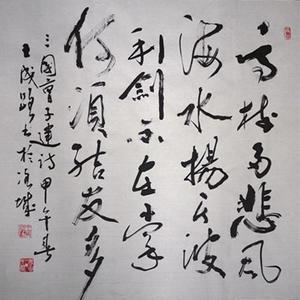 高樹多悲風
海水揚其波
利劍不在掌
何須結友多
三國曹子建詩甲午春
書於城